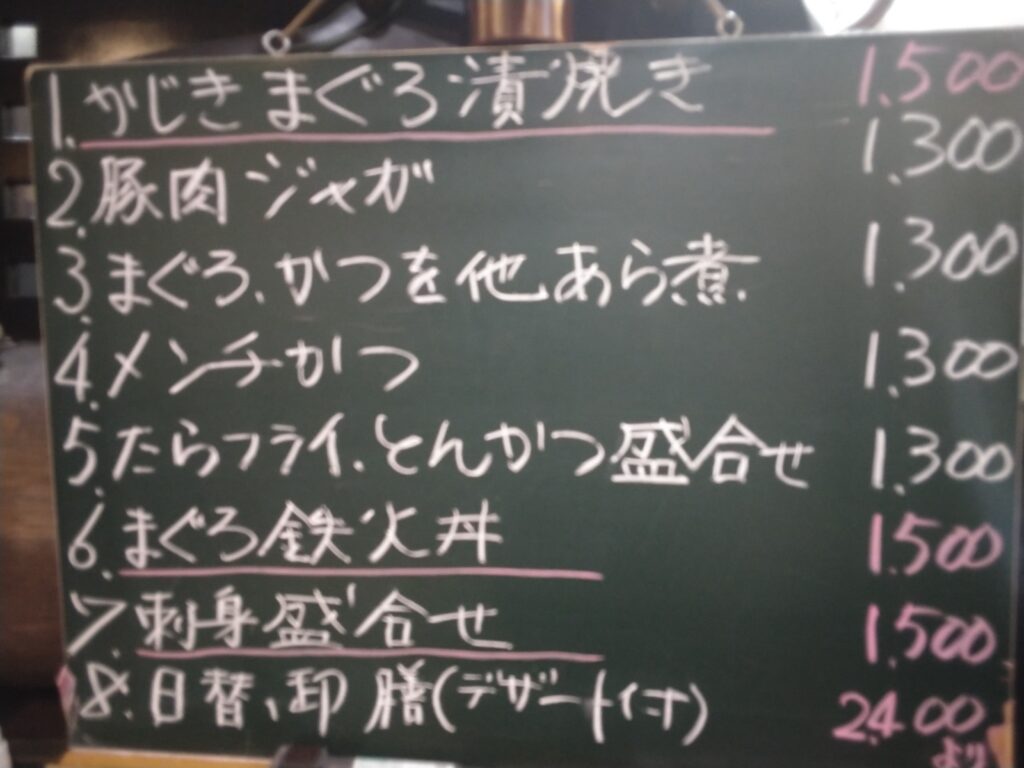 1. かじきまぐろ漬焼き 1.500
2. 豚肉ジャガ 1.300
3. まぐろ、かつを他あら煮 1.300
4. メンチかつ 1.300
5. たらフライ、とんかつ盛合せ 1.300
6. まぐろ鉄火丼 1.500
7. 刺身盛合せ 1.500
8. 日替、卸膳(デザート付) 2.400
より